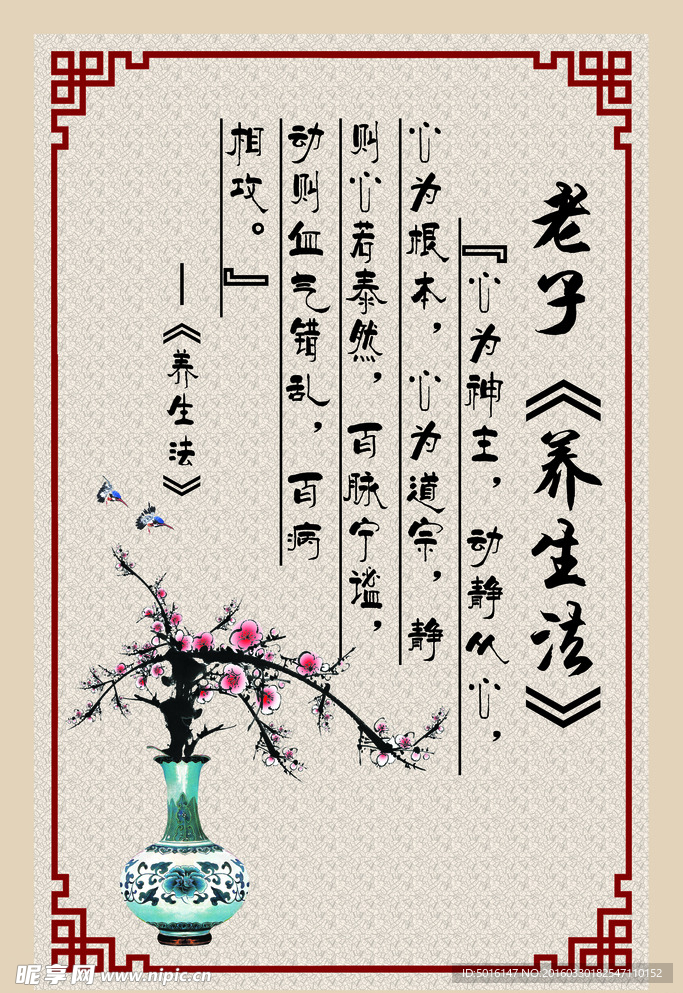 老子《养生法》
『心为神主，动静从心，
心为根本，心为道宗，静
则心若泰然，百脉宁谧，
动则血气错乱，百病
相攻。』
—《养生法》
昵享网 www.nipic.cn
ID:5016147 NO:20160330182547110152